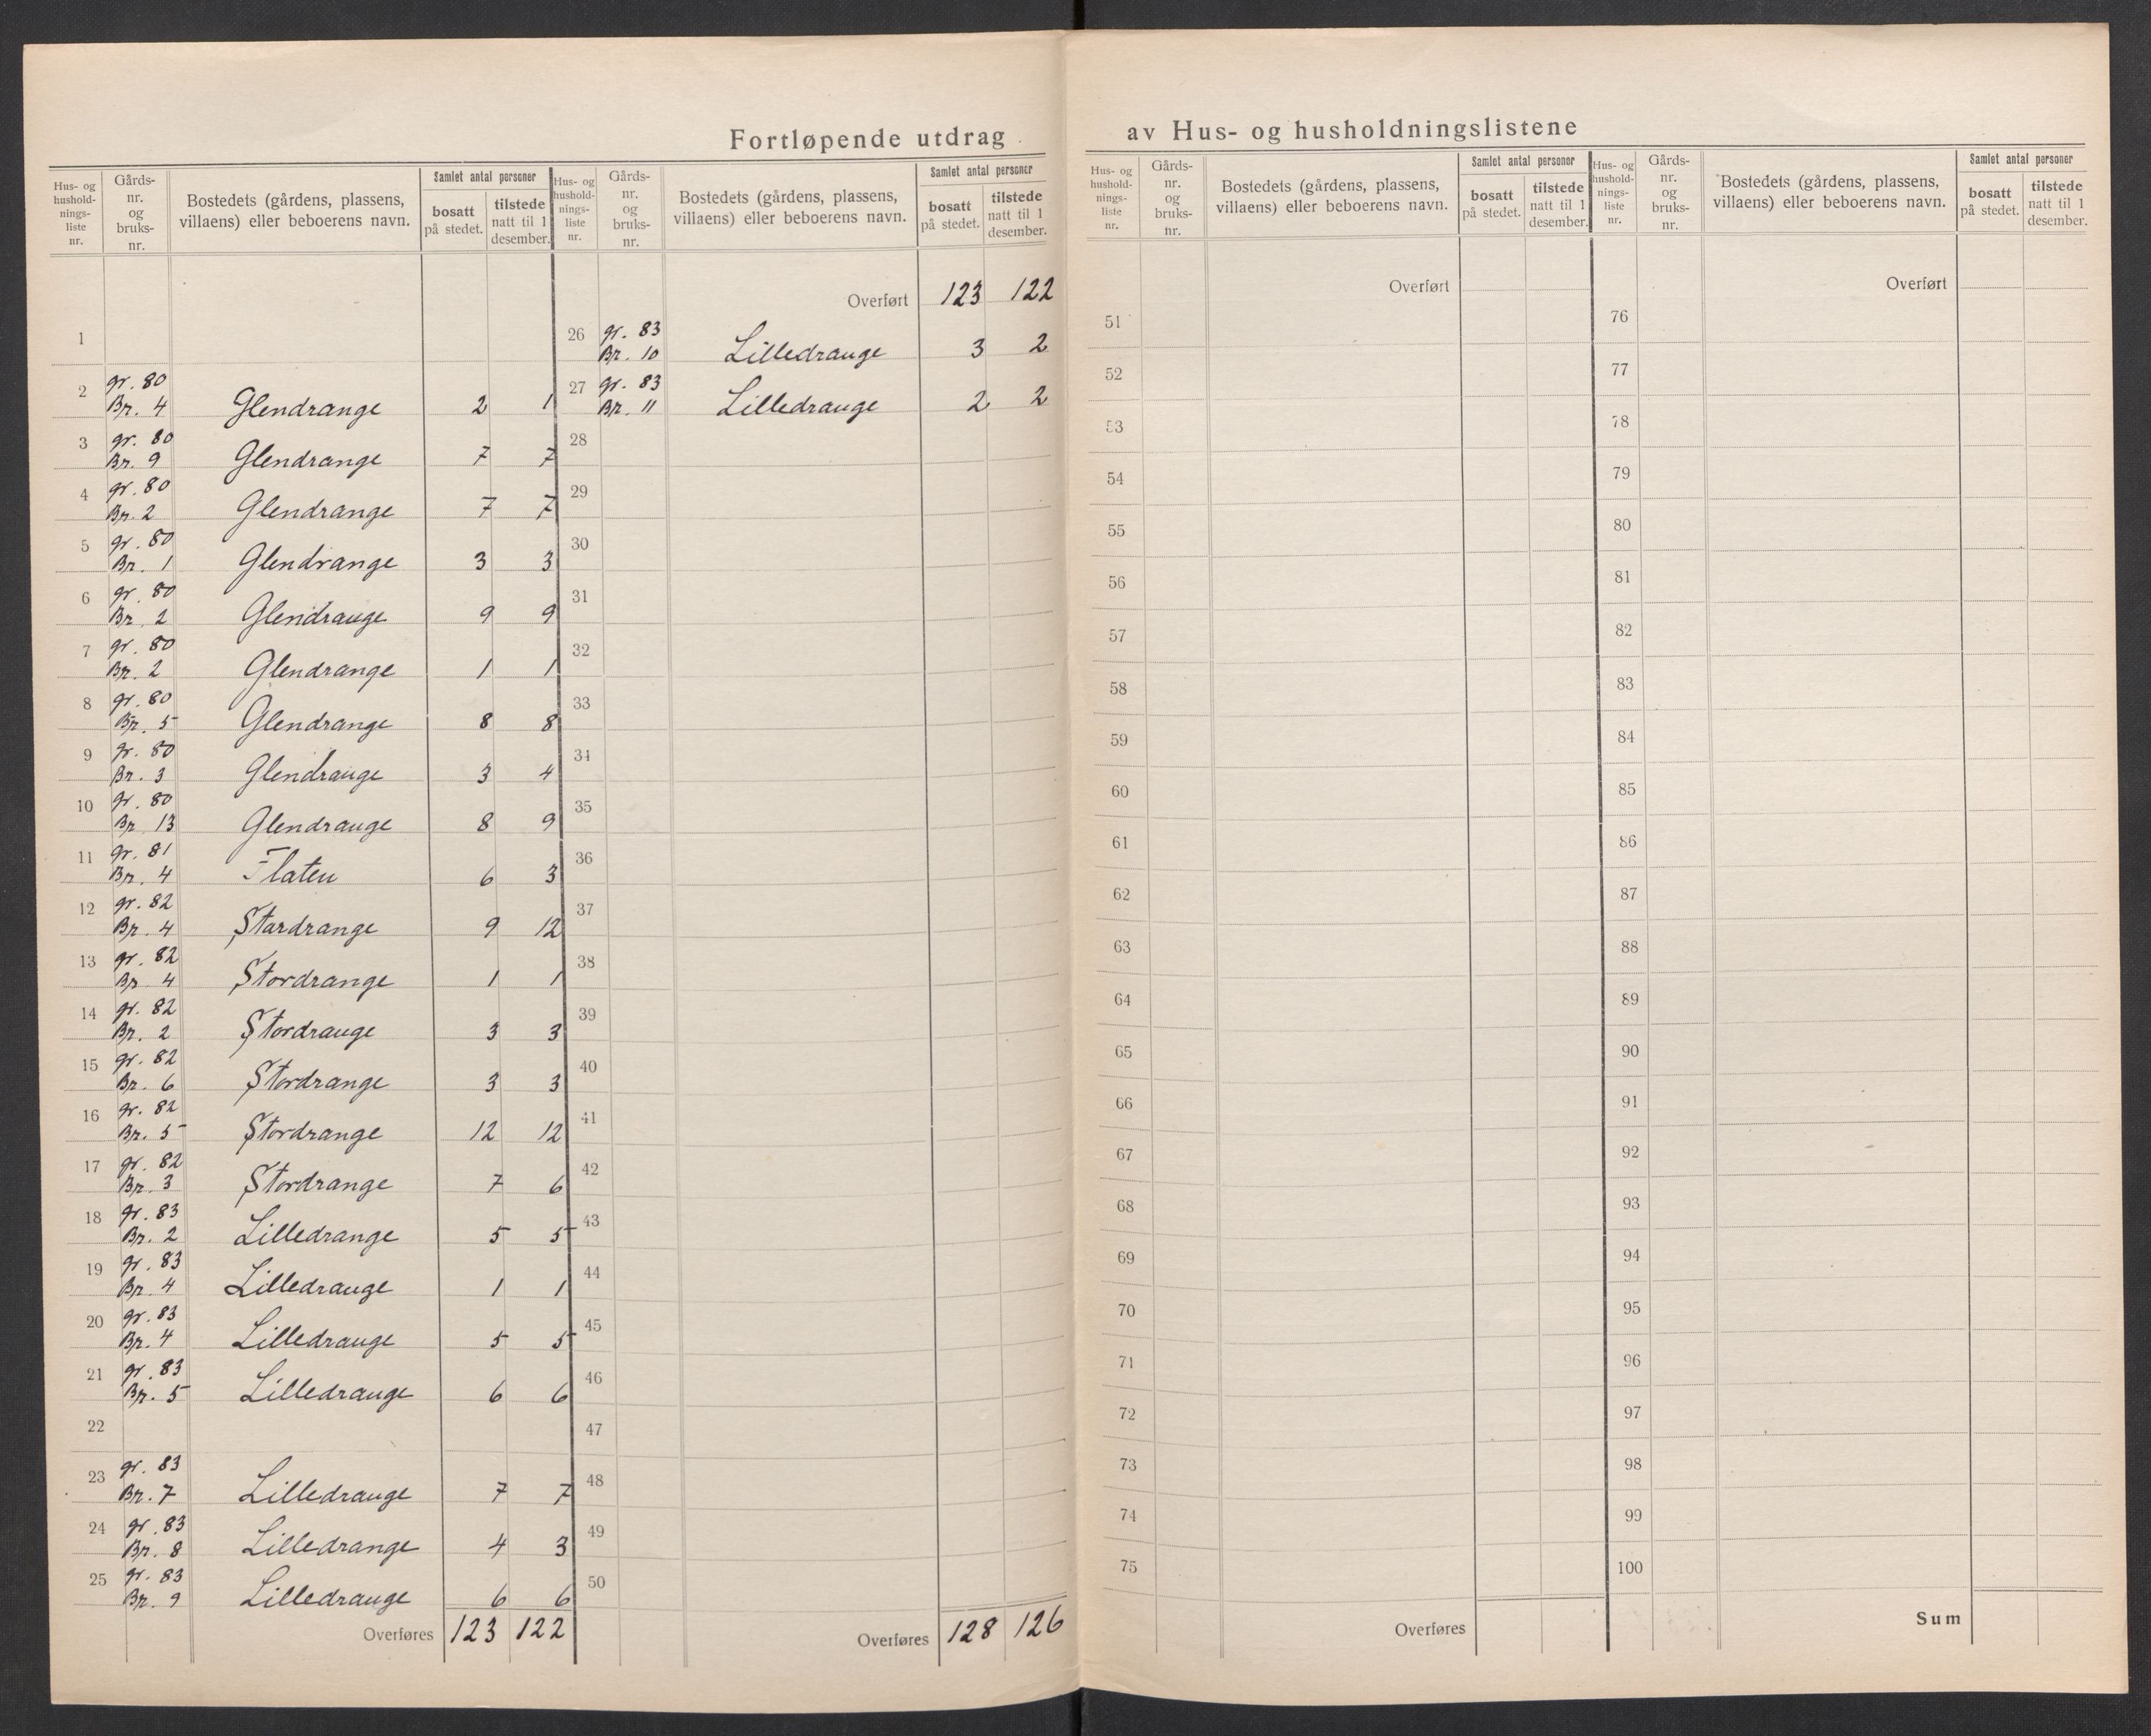 Fortløpende utdrag av Hus- og husholdningslistene
Hus- og hushold-nings-liste nr. Gårds-nr. og bruks-nr. Bostedets (gårdens, plassens, villaens) eller beboerens navn. Samlet antal personer bosatt på stedet. tilstede natt til 1 desember.
1
2 gr. 80 Br. 4 Glendrange 2 1
3 gr. 80 Br. 9 Glendrange 7 7
4 gr. 80 Br. 2 Glendrange 7 7
5 gr. 80 Br. 1 Glendrange 3 3
6 gr. 80 Br. 2 Glendrange 9 9
7 gr. 80 Br. 2 Glendrange 1 1
8 gr. 80 Br. 5 Glendrange 8 8
9 gr. 80 Br. 3 Glendrange 3 4
10 gr. 80 Br. 13 Glendrange 8 9
11 gr. 81 Br. 4 Flaten 6 3
12 gr. 82 Br. 4 Stordrange 9 12
13 gr. 82 Br. 4 Stordrange 1 1
14 gr. 82 Br. 2 Stordrange 3 3
15 gr. 82 Br. 6 Stordrange 3 3
16 gr. 82 Br. 5 Stordrange 12 12
17 gr. 82 Br. 3 Stordrange 7 6
18 gr. 83 Br. 2 Lilledrange 5 5
19 gr. 83 Br. 4 Lilledrange 1 1
20 gr. 83 Br. 4 Lilledrange 5 5
21 gr. 83 Br. 5 Lilledrange 6 6
22
23 gr. 83 Br. 7 Lilledrange 7 7
24 gr. 83 Br. 8 Lilledrange 4 3
25 gr. 83 Br. 9 Lilledrange 6 6
Overføres 123 122
Hus- og hushold-nings-liste nr. Gårds-nr. og bruks-nr. Bostedets (gårdens, plassens, villaens) eller beboerens navn. Samlet antal personer bosatt på stedet. tilstede natt til 1 desember.
Overført 123 122
26 gr. 83 Br. 10 Lilledrange 3 2
27 gr. 83 Br. 11 Lilledrange 2 2
28
29
30
31
32
33
34
35
36
37
38
39
40
41
42
43
44
45
46
47
48
49
50
Overføres 128 126
Hus- og hushold-nings-liste nr. Gårds-nr. og bruks-nr. Bostedets (gårdens, plassens, villaens) eller beboerens navn. Samlet antal personer bosatt på stedet. tilstede natt til 1 desember.
Overført
51
52
53
54
55
56
57
58
59
60
61
62
63
64
65
66
67
68
69
70
71
72
73
74
75
Overføres
Hus- og hushold-nings-liste nr. Gårds-nr. og bruks-nr. Bostedets (gårdens, plassens, villaens) eller beboerens navn. Samlet antal personer bosatt på stedet. tilstede natt til 1 desember.
Overført
76
77
78
79
80
81
82
83
84
85
86
87
88
89
90
91
92
93
94
95
96
97
98
99
100
Sum